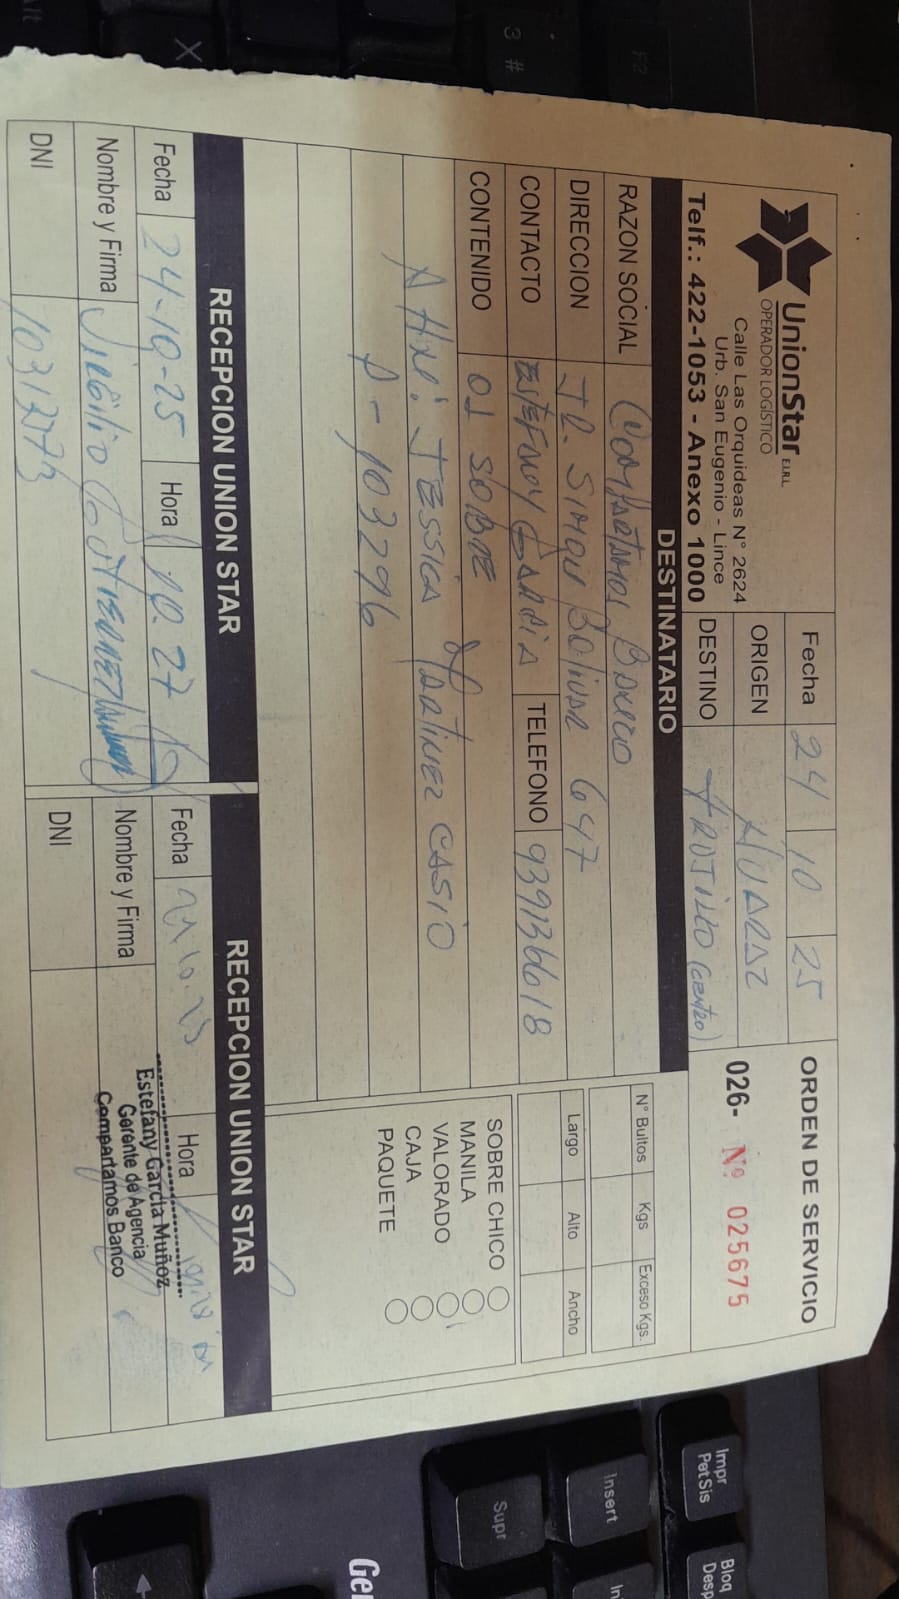 UnionStar E.I.R.L.
OPERADOR LOGÍSTICO
Calle Las Orquideas N° 2624
Urb. San Eugenio - Lince
Telf.: 422-1053 - Anexo 1000
Fecha 24 10 25
ORIGEN HUARAZ
DESTINO TRUJILLO (CENTRO)
ORDEN DE SERVICIO
026- Nº 025675
DESTINATARIO
RAZON SOCIAL Compartamos Banco
DIRECCION JR. SIMON BOLIVAR 647
CONTACTO ESTEFANY GARCIA TELEFONO 939136618
CONTENIDO 01 SOBRE
JESSICA MARTINEZ CASIO
P-103296
N° Bultos Kgs Exceso Kgs.
Largo Alto Ancho
SOBRE CHICO
MANILA
VALORADO
CAJA
PAQUETE
RECEPCION UNION STAR
Fecha 24-10-25 Hora 10.27
Nombre y Firma Virgilio
DNI
RECEPCION UNION STAR
Fecha Hora
Nombre y Firma
Estefany García Muñoz
Gerente de Agencia
Compartamos Banco
DNI
Impr
PetSis
Bloq
Desp
Insert
Supr
Ge
3 #
X
F2